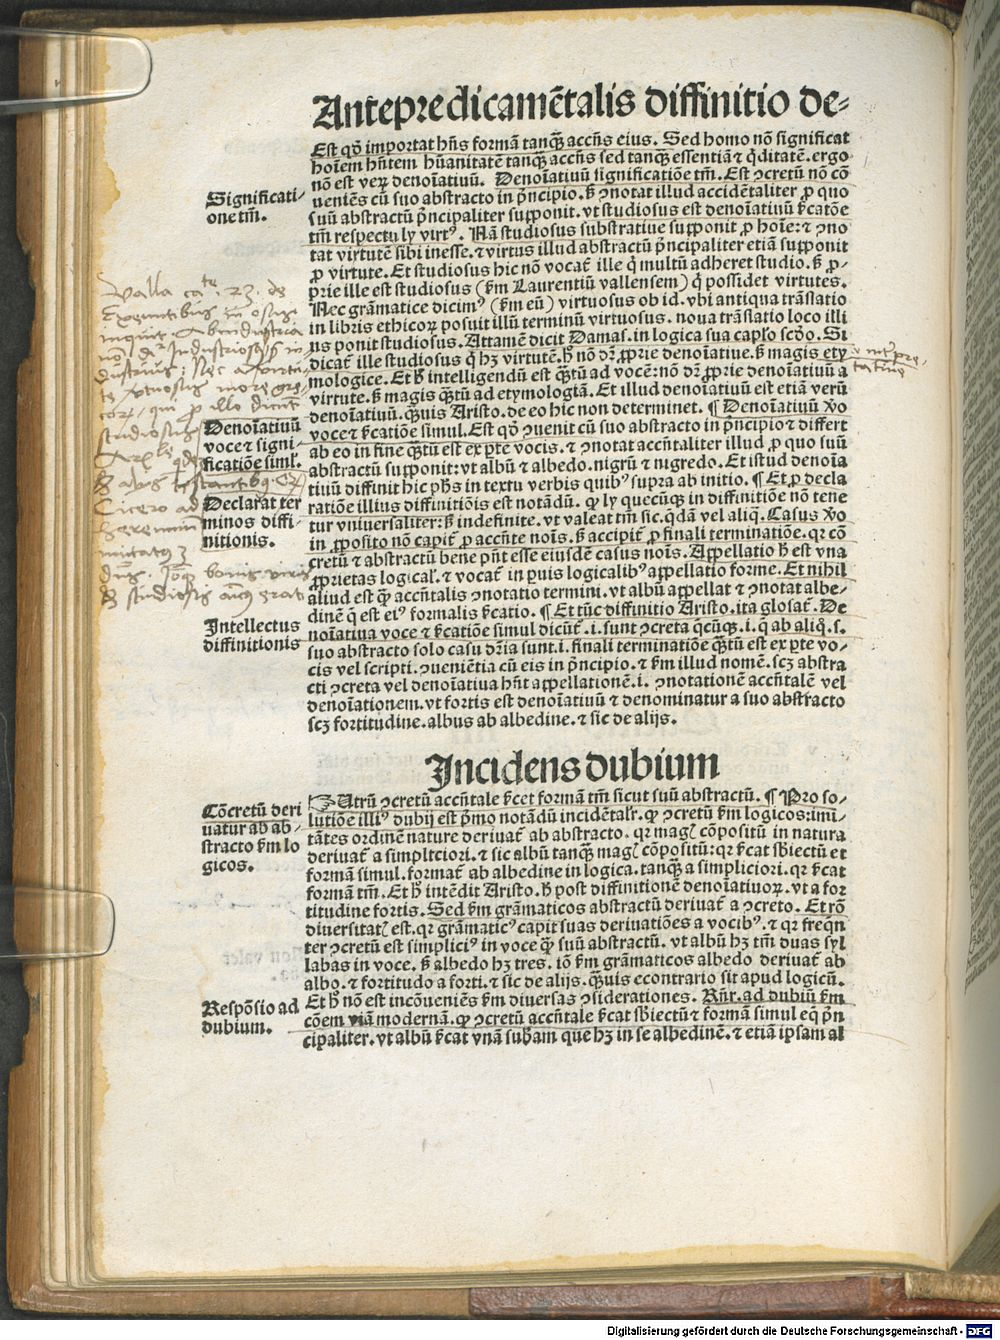 Antepredicamẽtalis diffinitio de⸗
Est qꝺ importat hñs formã tanqꝫ accñs eius. Sed homo nõ significat
hoĩem hñtem hũanitatẽ tanqꝫ accñs sed tanqꝫ essentiã ⁊ qͥditatẽ. ergo
nõ est veꝝ denoĩatiuũ. Denoĩatiuũ significatiõe tm̃. Est ↄcretũ nõ cõ
Significati⸗
one tm̃.
ueniẽs cũ suo abstracto in pͥncipio. sꝫ ↄnotat illud accidẽtaliter ꝓ quo
suũ abstractũ pͥncipaliter supponit. vt studiosus est denoĩatiuũ sͥcatõe
tm̃ respectu ly virtꝰ. Nã studiosus substratiue supponit ꝓ hoĩe: ⁊ ↄno
tat virtutẽ sibi inesse. ⁊ virtus illud abstractũ pͥncipaliter etiã supponit
ꝓ virtute. Et studiosus hic nõ vocat̃ ille qͥ multũ adheret studio. sꝫ ꝓ⸗
prie ille est studiosus (sͫ Laurentiũ vallensem) qͥ possidet virtutes.
Nec grãmatice dicimꝰ (sͫ eũ) virtuosus ob id. vbi antiqua trãslatio
in libris ethicoꝝ posuit illũ terminũ virtuosus. noua trãslatio loco illi
us ponit studiosus. Attamẽ dicit Damas. in logica sua caplo scꝺo. Si
dicat̃ ille studiosus qͥ hꝫ virtutẽ. hͦ nõ dr̃ ꝓprie denoĩatiue. sꝫ magis ety
mologice. Et hͦ intelligendũ est qͣꝫtũ ad vocẽ: nõ dr̃ ꝓprie denoĩatiuũ a
virtute. sꝫ magis qͣꝫtũ ad etymologiã. Et illud denoĩatiuũ est etiã verũ
denoĩatiuũ. qͣꝫuis Aristo. de eo hic non determinet. ¶ Denoĩatiuũ ꝟo
Denoĩatiuũ
voce ⁊ signi⸗
ficatiõe siml̃.
voce ⁊ sͥcatiõe simul. Est qꝺ ↄuenit cũ suo abstracto in pͥncipio ⁊ differt
ab eo in fine qͣꝫtũ est ex ꝑte vocis. ⁊ ↄnotat accñtaliter illud ꝓ quo suũ
abstractũ supponit: vt albũ ⁊ albedo. nigrũ ⁊ nigredo. Et istud denoĩa
tiuũ diffinit hic phs̃ in textu verbis quibꝰ supra ab initio. ¶ Et ꝓ decla
Declarat ter
minos diffi⸗
nitionis.
ratiõe illius diffinitiõis est notãdũ. ꝙ ly quecũqꝫ in diffinitiõe nõ tene
tur vniuersaliter: sꝫ indefinite. vt valeat tm̃ sic. qͥdã vel aliqͥ. Casus ꝟo
in ꝓposito nõ capit̃ ꝓ accñte noĩs. sꝫ accipit̃ ꝓ finali terminatiõe. qr cõ
cretũ ⁊ abstractũ bene pñt esse eiusdẽ casus noĩs. Appellatio hͦ est vna
ꝓprietas logical̃. ⁊ vocat̃ in ꝑuis logicalibꝰ appellatio forme. Et nihil
aliud est qͣꝫ accñtalis ↄnotatio termini. vt albũ appellat ⁊ ↄnotat albe⸗
dinẽ qͥ est eiꝰ formalis sͥcatio. ¶ Et tũc diffinitio Aristo. ita glosat̃. De
Intellectus
diffinitionis
noĩatiua voce ⁊ sͥcatiõe simul dicũt̃. i. sunt ↄcreta qͥcũqꝫ. i. qͥ ab aliqͦ. s.
suo abstracto solo casu dr̃ia sunt. i. finali terminatiõe qͣꝫtũ est ex ꝑte vo⸗
cis vel scripti. ↄueniẽtia cũ eis in pͥncipio. ⁊ sͫ illud nomẽ. scꝫ abstra
cti ↄcreta vel denoĩatiua hñt appellationẽ. i. ↄnotationẽ accñtalẽ vel
denoĩationem. vt fortis est denoĩatiuũ ⁊ denominatur a suo abstracto
scꝫ fortitudine. albus ab albedine. ⁊ sic de alijs.
Incidens dubium
Cõcretũ deri
uatur ab ab⸗
stracto sͫ lo
gicos.
Utrũ ↄcretũ accñtale sͥcet formã tm̃ sicut suũ abstractũ. ¶ Pro so⸗
lutiõe illiꝰ dubij est pͥmo notãdũ incidẽtalr̃. ꝙ ↄcretũ sͫ logicos: imi⸗
tãtes ordinẽ nature deriuat̃ ab abstracto. qr magl̃ cõpositũ in natura
deriuat̃ a simpltciori. ⁊ sic albũ tanqꝫ magl̃ cõpositũ: qr sͥcat sbiectũ et
formã simul. format̃ ab albedine in logica. tanqͣꝫ a simpliciori. qr sͥcat
formã tm̃. Et hͦ intẽdit Aristo. hͦ post diffinitionẽ denoĩatiuoꝝ. vt a for
titudine fortis. Sed sͫ grãmaticos abstractũ deriuat̃ a ↄcreto. Et rõ
diuersitatl̃ est. qr grãmaticꝰ capit suas deriuatiões a vocibꝰ. ⁊ qr freqñ
ter ↄcretũ est simpliciꝰ in voce qͣꝫ suũ abstractũ. vt albũ hꝫ tm̃ duas syl
labas in voce. sꝫ albedo hꝫ tres. iõ sͫ grãmaticos albedo deriuat̃ ab
albo. ⁊ fortitudo a forti. ⁊ sic de alijs. qͣꝫuis econtrario sit apud logicũ.
Respõsio ad
dubium.
Et hͦ nõ est incõueniẽs sͫ diuersas ↄsiderationes. Rñr. ad dubiũ sͫ
cõem viã modernã. ꝙ ↄcretũ accñtale sͥcat sbiectũ ⁊ formã simul eqͥ pͥn
cipaliter. vt albũ sͥcat vnã subam que hꝫ in se albedinẽ. ⁊ etiã ipsam al
Digitalisierung gefördert durch die Deutsche Forschungsgemeinschaft - DFG